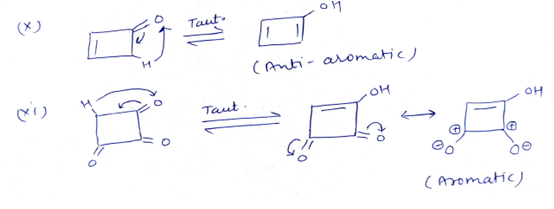 (x) O Taut. OH
H
(Anti-aromatic)
(xi) H O Taut. OH OH
O O O O ⊕ ⊕
⊖O O⊖
(Aromatic)